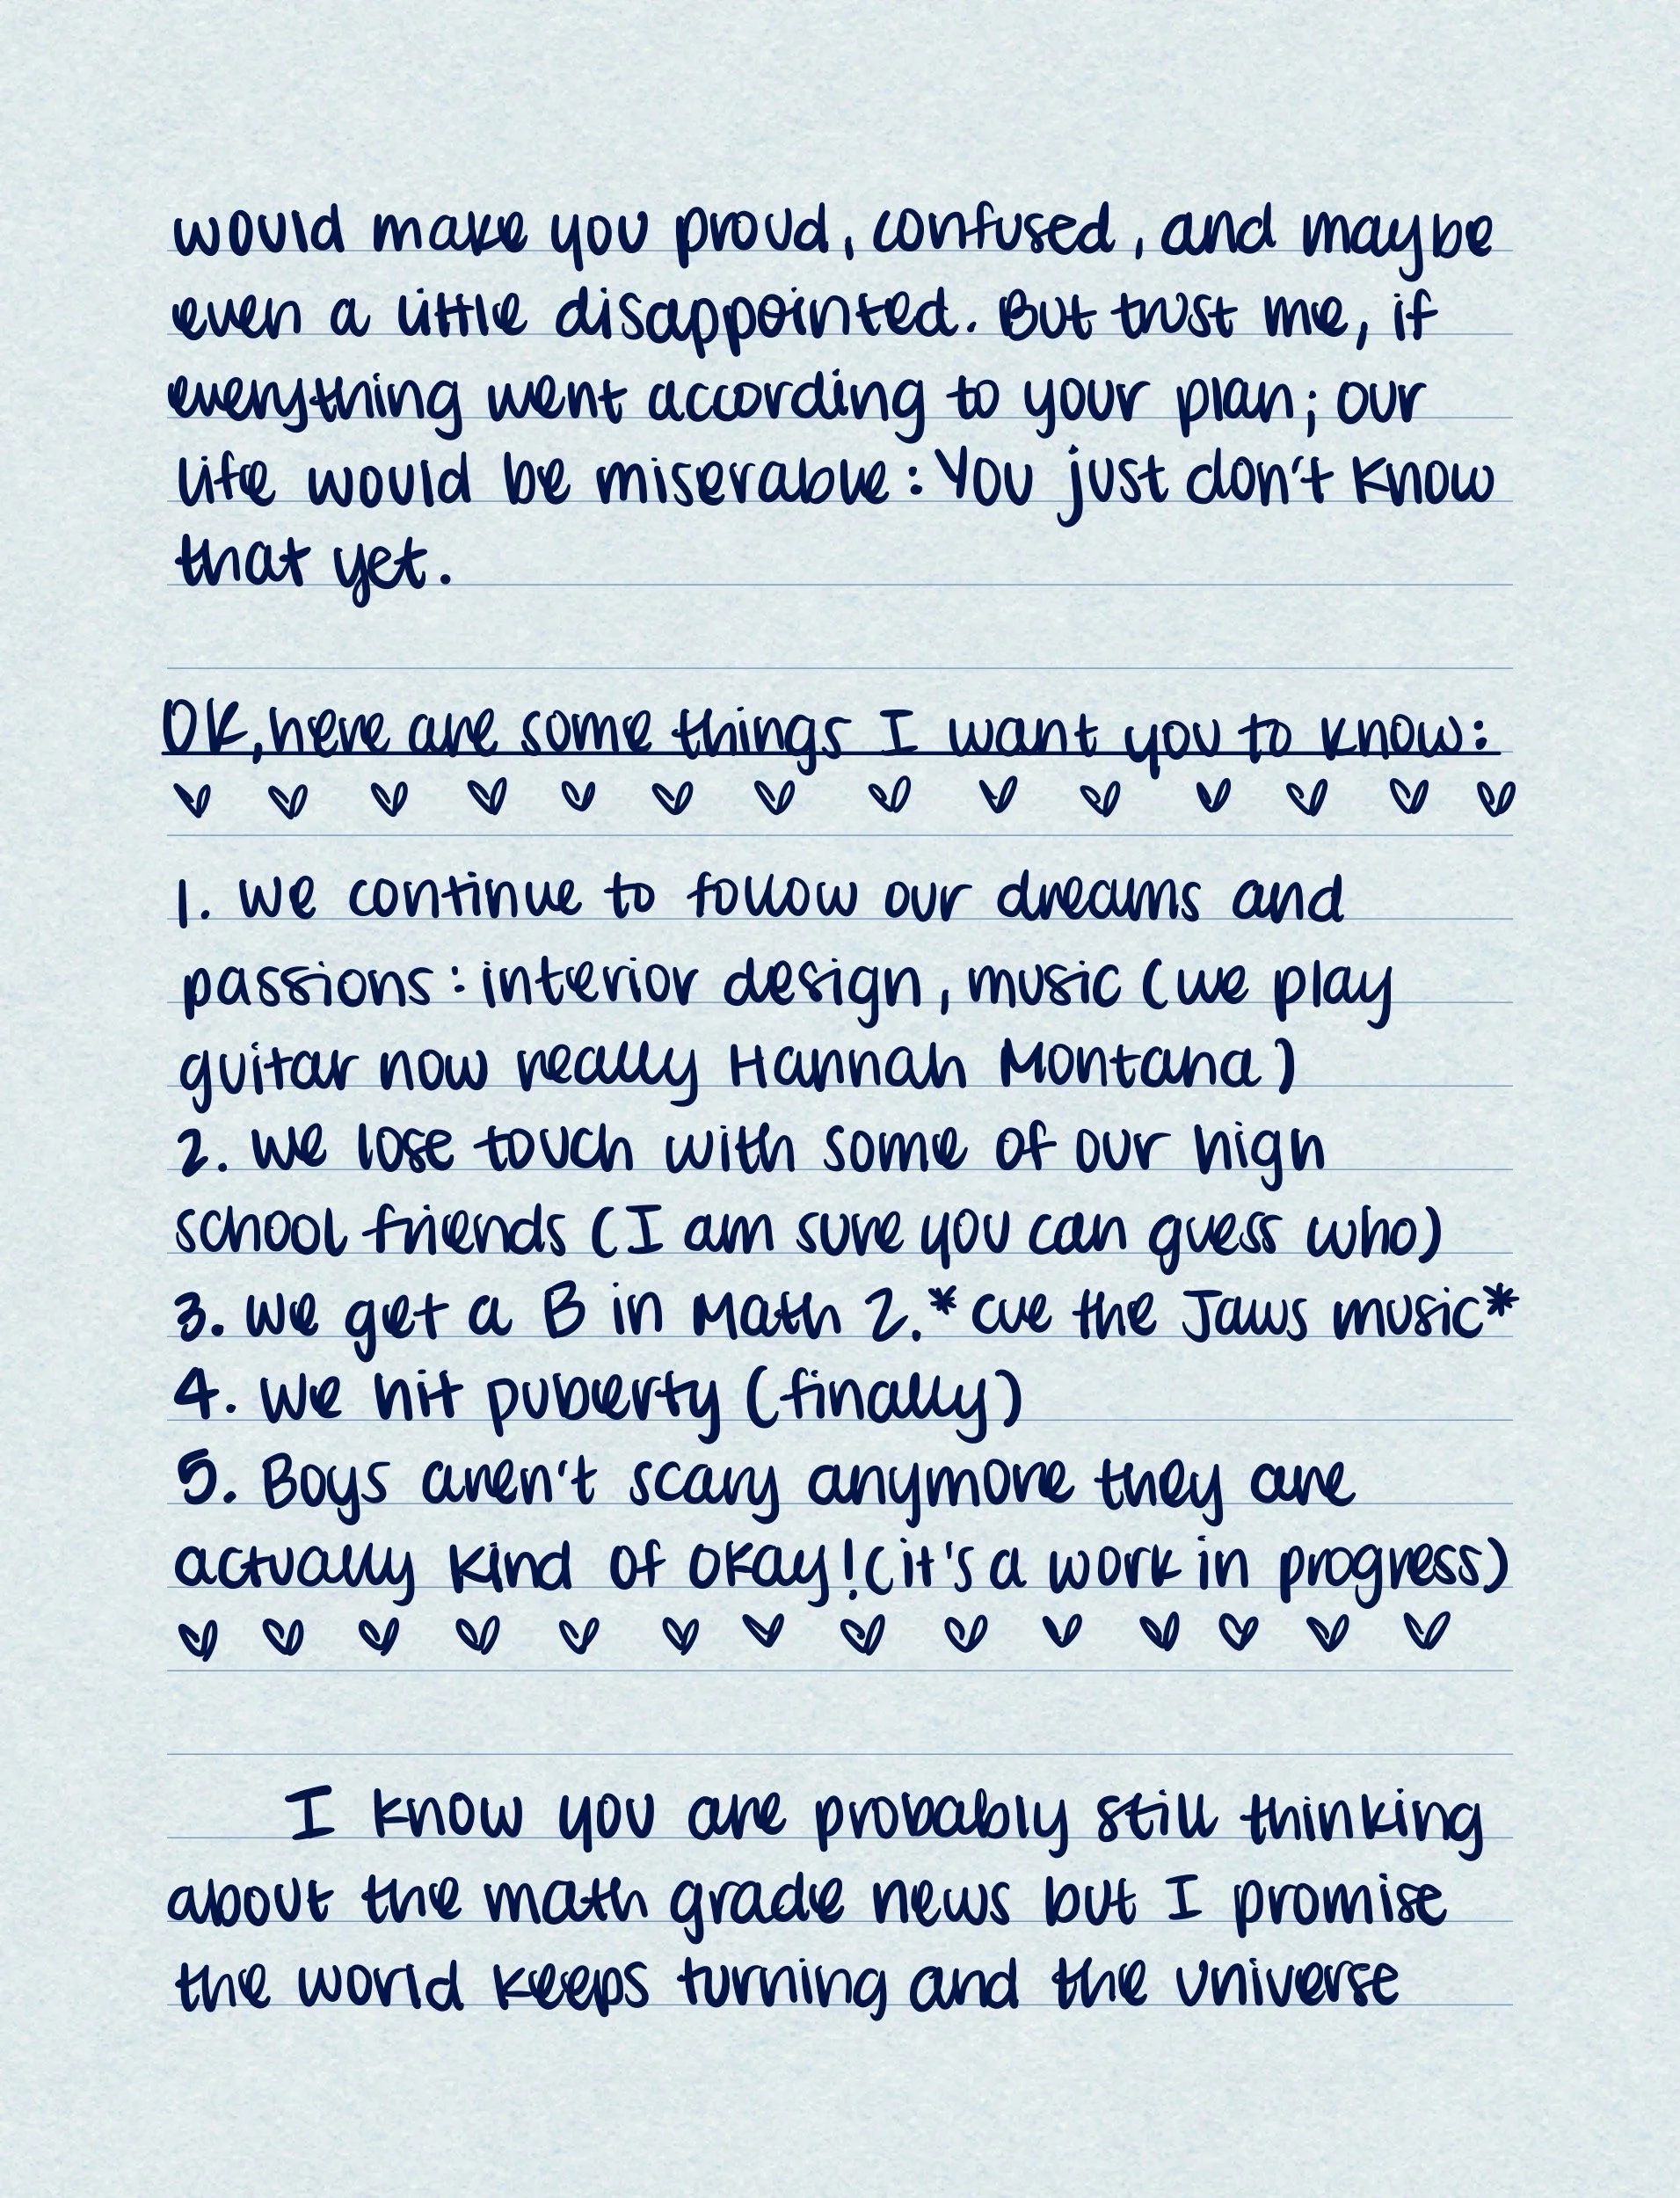 would make you proud, confused, and maybe
even a little disappointed. But trust me, if
everything went according to your plan; our
life would be miserable: You just don't know
that yet.
OK, here are some things I want you to know:
1. We continue to follow our dreams and
passions: interior design, music (we play
guitar now really Hannah Montana)
2. We lose touch with some of our high
school friends (I am sure you can guess who)
3. We get a B in Math 2. *cue the Jaws music*
4. We hit puberty (finally)
5. Boys aren't scary anymore they are
actually kind of okay! (it's a work in progress)
I know you are probably still thinking
about the math grade news but I promise
the world keeps turning and the universe